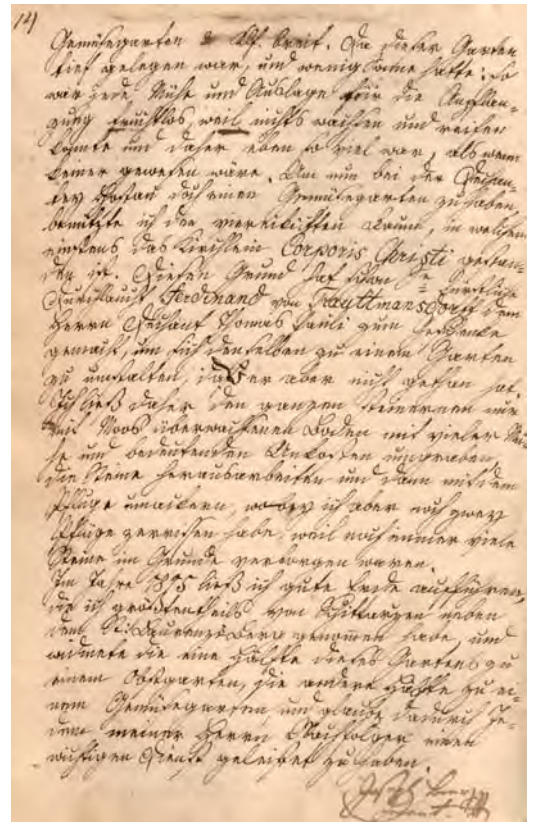 14)
Gemüsegarten & Klf. breit. Da dieser Garten
tief gelegen war, und wenig Sonne hatte: so
war jede Mühe und Auslage für die Anpflan=
zung fruchtlos, weil nichts wachsen und reifen
konnte und daher eben so viel war, als wenn
keiner gewesen wäre. Um nun bei der Dechan=
tey Hostau doch einen Gemüsegarten zu haben,
benützte ich den viereckichten Raum, in welchem
einstens das Kirchlein Corporis Christi gestan=
den ist. Diesen Grund hat schon Se fürstliche
Durchlaucht Ferdinand von Trauttmansdorff dem
Herrn Dechant Thomas Pauli zum Geschenke
gemacht, um sich denselben zu einem Garten
zu umstalten, das er aber nicht gethan hat.
Ich ließ daher den ganzen steinernen nur
mit Moos überwachsenen Boden mit vieler Mü=
he und bedeutenden Unkosten umgraben,
die Steine herausarbeiten und dann mit dem
Pfluge umackern, wobey ich aber noch zwey
Pflüge zerrissen habe, weil noch immer viele
Steine im Grunde verborgen waren.
Im Jahre ließ ich gute Erde aufführen,
die ich größtentheils von neben
dem St: Laurenzi Berg genommen habe, und
widmete die eine Hälfte dieses Gartens zu
einem Obstgarten, die andere Hälfte zu ei=
nem Gemüsegarten, und glaube dadurch Je=
dem meiner Herrn Nachfolger einen
wichtigen Dienst geleistet zu haben.
Joseph